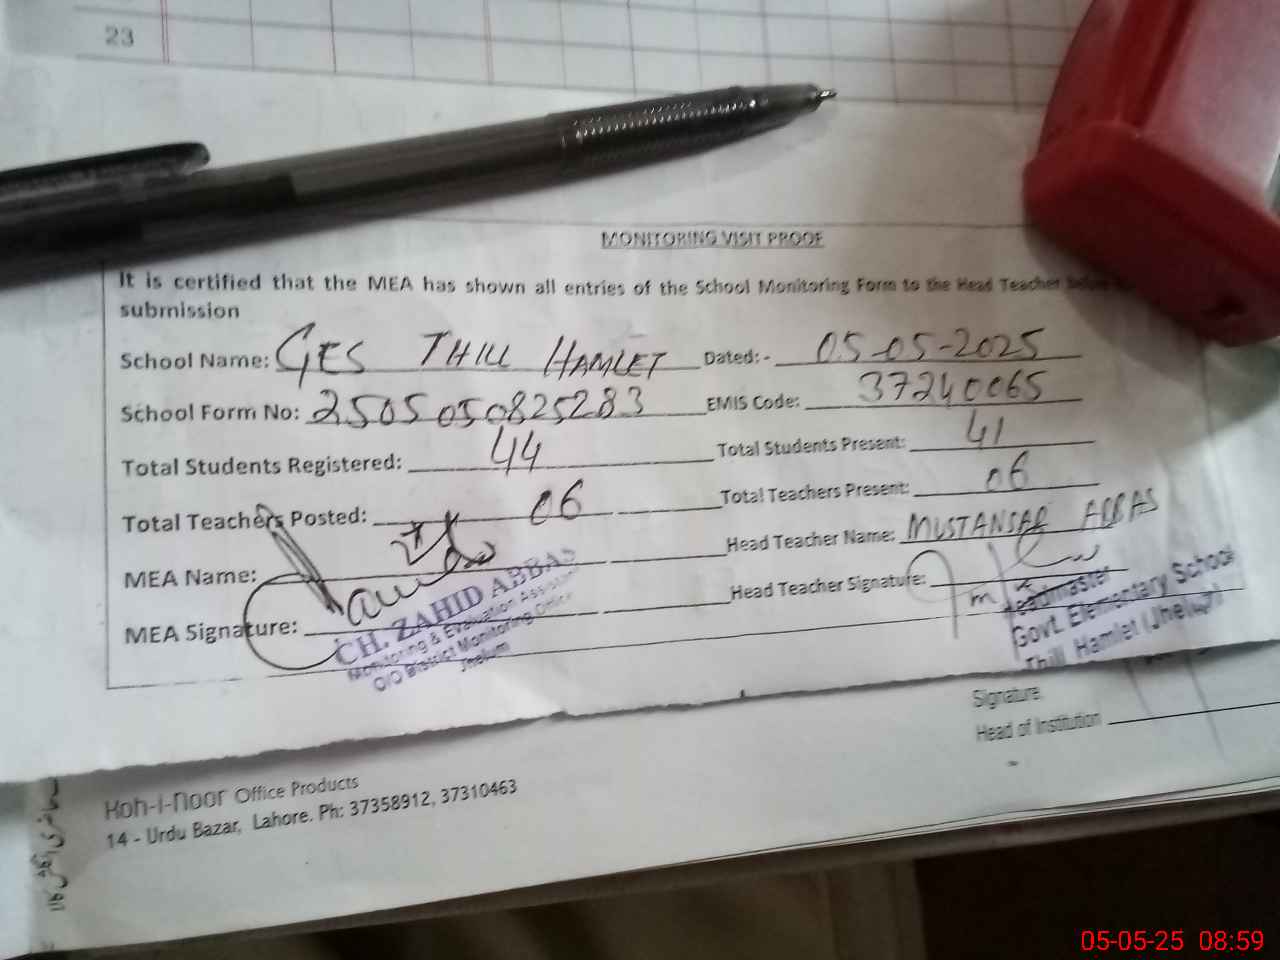 23
MONITORING VISIT PROOF
It is certified that the MEA has shown all entries of the School Monitoring Form to the Head Teacher before
submission
School Name: GES THILL HAMLET Dated:- 05-05-2025
School Form No: 2505050825283 EMIS Code: 37240065
Total Students Registered: 44 Total Students Present: 41
Total Teachers Posted: 06 Total Teachers Present: 06
MEA Name: Head Teacher Name: MUSTANSAR ABBAS
MEA Signature: Head Teacher Signature:
CH. ZAHID ABBAS
Monitoring & Evaluation Assistant
O/O District Monitoring Office
Jhelum
Headmaster
Govt. Elementary School
Thill Hamlet (Jhelum)
Signature
Head of Institution
Koh-i-noor Office Products
14 - Urdu Bazar, Lahore. Ph: 37358912, 37310463
05-05-25 08:59